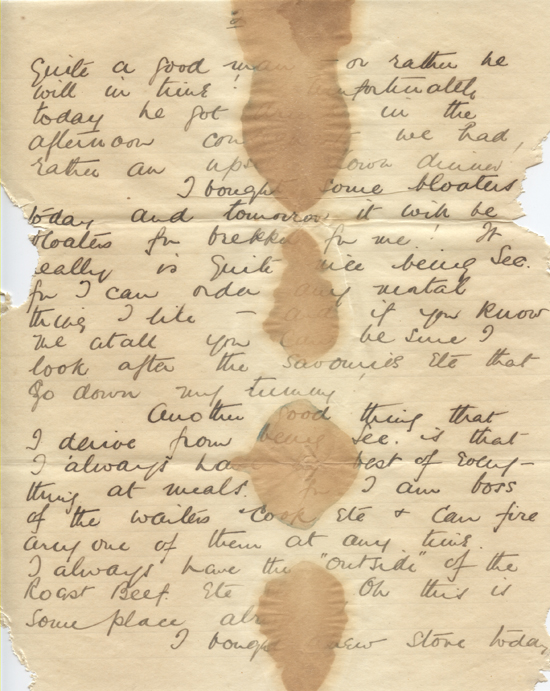 Quite a good man – or rather he
will in time! fortunately
today he got in the
afternoon we had
rather an down dinner
I bought some bloaters
today and tomorrow it will be
bloaters for brekker for me! It
really is Quite nice being Sec.
for I can order any
thing I like – and if you know
me atall you can be sure I
look after the savouries Etc that
go down my tummy!
Another good thing that
I derive from being Sec. is that
I always have best of Every-
thing at meals. I am boss
of the waiters Cook Etc & can fire
any one of them at any time.
I always have the "outside" of the
Roast Beef Etc Oh this is
Some place
I bought new stove today